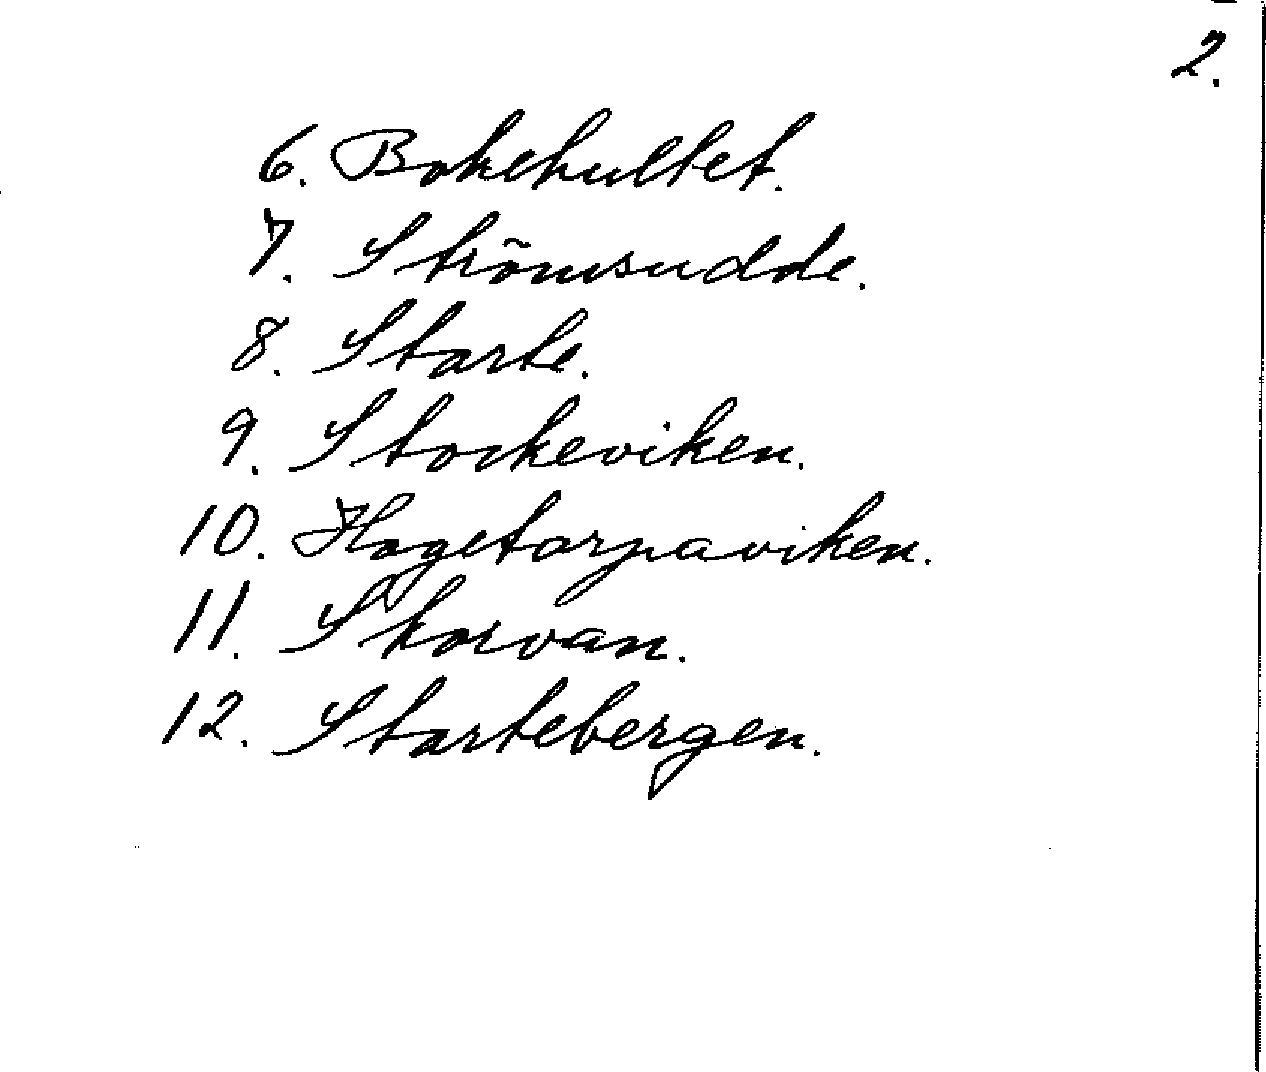 2.
6. Bokehultet.
7. Strömsudde.
8. Starte.
9. Stockeviken.
10. Hagetorpaviken.
11. Skorvan.
12. Startebergen.